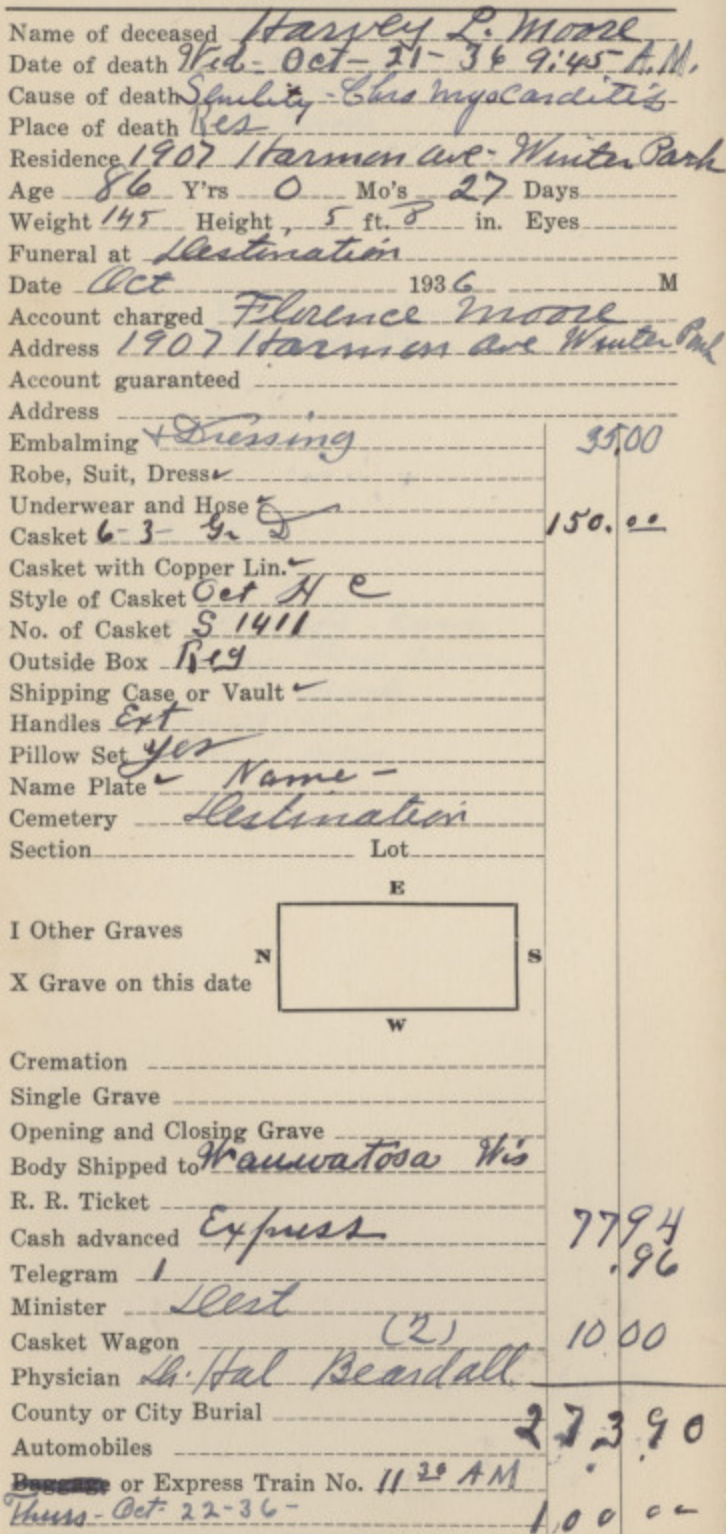 Name of deceased Harvey L. Moore
Date of death Wed- Oct- 21- 36 9:45 A.M.
Cause of death Senility - Chro Myocarditis
Place of death Res
Residence 1907 Harmon ave- Winter Park
Age 86 Y'rs 0 Mo's 27 Days
Weight 145 Height, 5 ft. 8 in. Eyes
Funeral at Destination
Date Oct 1936 M
Account charged Florence Moore
Address 1907 Harmon ave Winter Park
Account guaranteed
Address
Embalming + Dressing 35.00
Robe, Suit, Dress ✓
Underwear and Hose ✓
Casket 6-3- Gr D 150.00
Casket with Copper Lin. ✓
Style of Casket Oct H C
No. of Casket S 1411
Outside Box Reg
Shipping Case or Vault ✓
Handles Ext
Pillow Set yes
Name Plate ✓ Name -
Cemetery Destination
Section Lot
E
I Other Graves
N S
X Grave on this date
W
Cremation
Single Grave
Opening and Closing Grave
Body Shipped to Wauwatosa Wis
R. R. Ticket
Cash advanced Express 77 94
Telegram 1 .96
Minister Dest
Casket Wagon (2) 10 00
Physician Dr. Hal Beardall
County or City Burial 273.90
Automobiles
Baggage or Express Train No. 11 30 AM
Thurs- Oct 22-36- 100 00